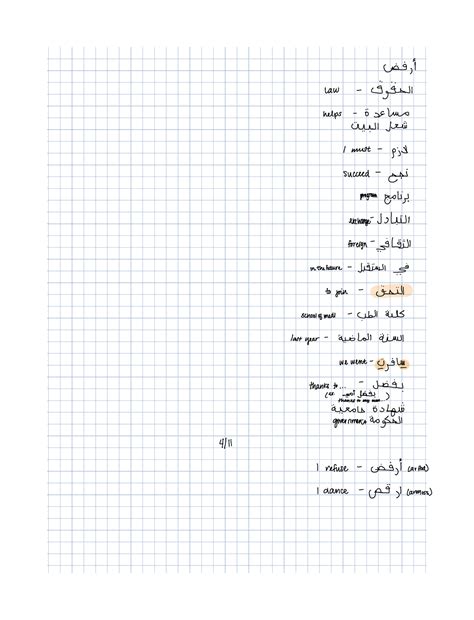 أرفض
الحقوق - Law
مساعدة - helps
شغل البيت
لازم - I must
نجح - succeed
برنامج program
التبادل - exchange
الثقافي - foreign
في المستقبل - in the future
التحق - to join
كلية الطب - school of med
السنة الماضية - last year
سافرت - we went
بفضل - thanks to...
(ex. بفضل أمي thanks to my mom)
شهادة جامعية
الحكومة government
4/11
أرفض - I refuse
ارقص - I dance